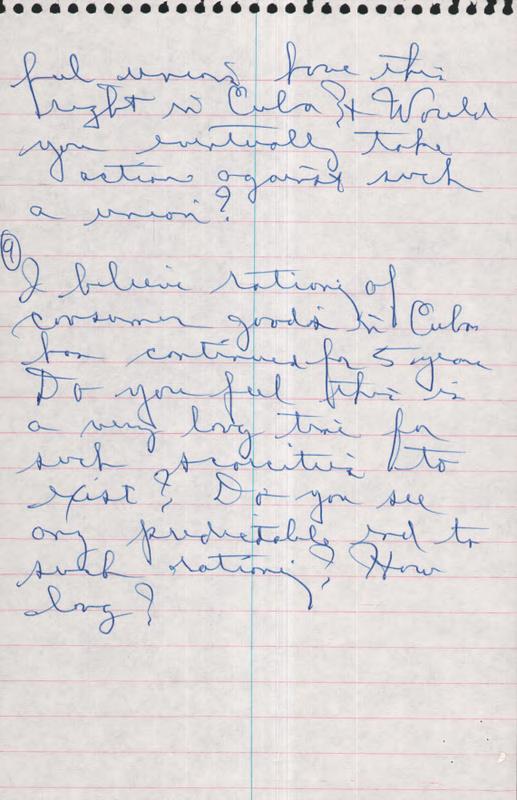 ful unions have this
right in Cuba? & Would
you eventually take
action against such
a union?
⑨
I believe rationing of
consumer goods in Cuba
has continued for 5 years
Do you feel this is
a very long time for
such scarcities to
exist? Do you see
any predictable end to
such rationing? How
long?